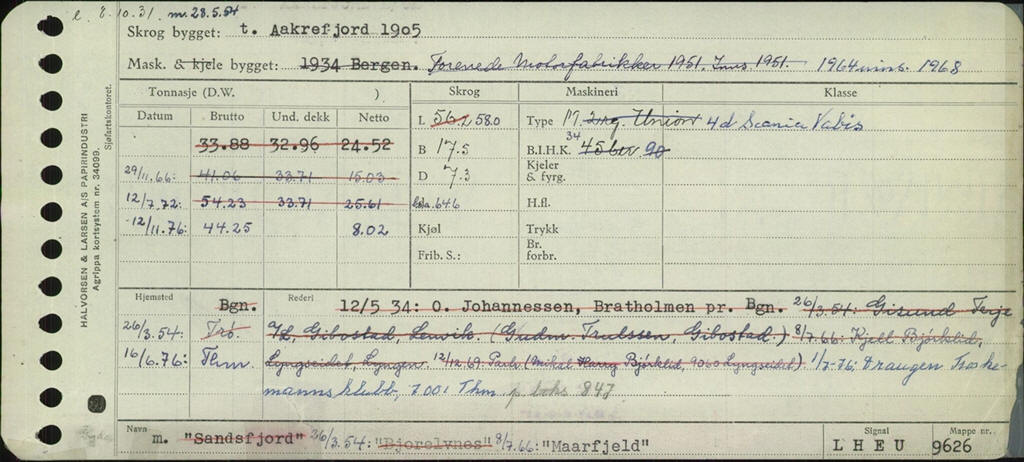 e. 8.10.31. m. 28.5.54
Skrog bygget: t. Aakrefjord 1905
Mask. & kjele bygget: 1934 Bergen. Forenede Motorfabrikker 1951. Inns 1951. 1964 inns. 1968
Tonnasje (D.W. ) Skrog Maskineri Klasse
Datum Brutto Und. dekk Netto
L 56.2 58.0 Type M. 2 syl. Union 4 d Scania Vabis
33.88 32.96 24.52
B 17.5 B.I.H.K. 34 45 90
29/11.66: 41.06 33.71 15.03
D 7.3 Kjeler & fyrg.
12/7.72: 54.23 33.71 25.61 64.6 H.fl.
12/11.76: 44.25 8.02
Kjøl Trykk
Frib. S.: Br. forbr.
Hjemsted Bgn. Rederi 12/5 34: O. Johannessen, Bratholmen pr. Bgn. 26/3.54: Gisund Ferje
26/3.54: Trø. A/L, Gibostad, Lenvik. (Gudm. Trulssen, Gibostad.) 8/7.66: Kjell Bjørklid,
16/6.76: Thm. Lyngseidet, Lyngen. 12/12.69: Parts (Mikal Harry Bjørklid, 9060 Lyngseidet) 1/7-76: Draugen Froske-
mannsklubb, 7001 Thm. p. boks 847
Navn m. "Sandsfjord" 26/3.54: "Bjorelvnes" 8/7.66: "Maarfjeld"
Signal LHEU
Mappe nr. 9626
HALVORSEN & LARSEN A/S PAPIRINDUSTRI
Agrippa kortsystem nr. 34099.
Sjøfartskontoret.